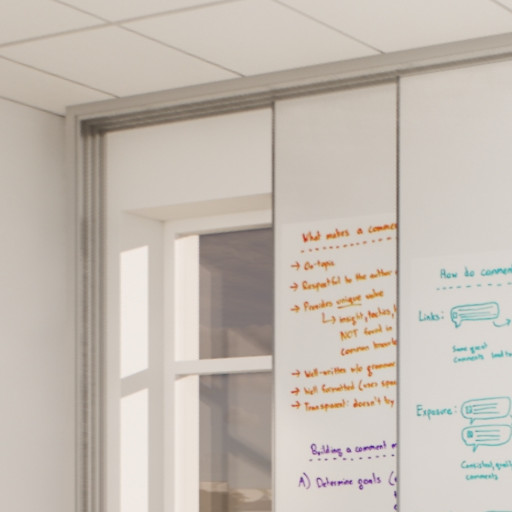 What makes a commen
→ On-topic
→ Respectful to the author
→ Provides unique value
↳ insight, tactics,
NOT found in
common knowle
→ Well-written w/o grammar
→ Well formatted (uses spac
→ Transparent: doesn't try
Building a comment
A) Determine goals
How do commen
Links:
Some good
comments
Exposure:
Consistent,
comments